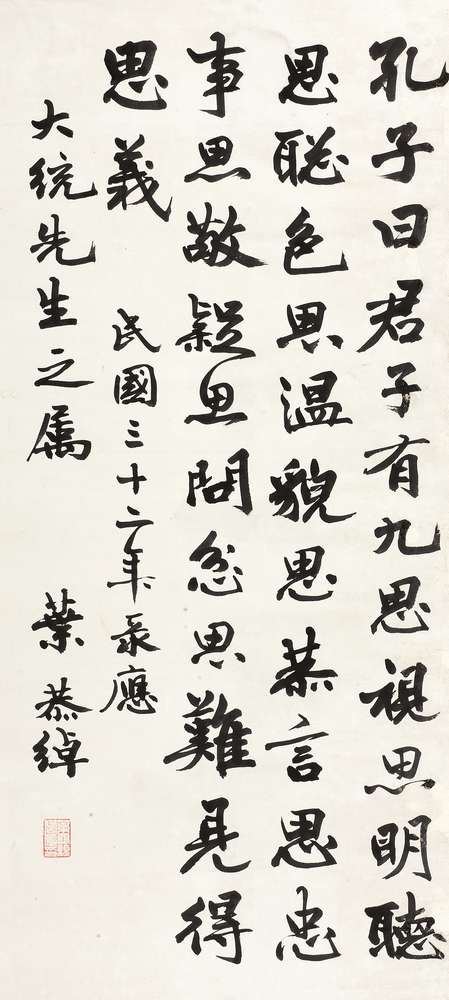 孔子曰君子有九思視思明聽
思聪色思温貌思恭言思忠
事思敬疑思問忿思難見得
思義
民國三十二年录應
大統先生之属
葉恭綽